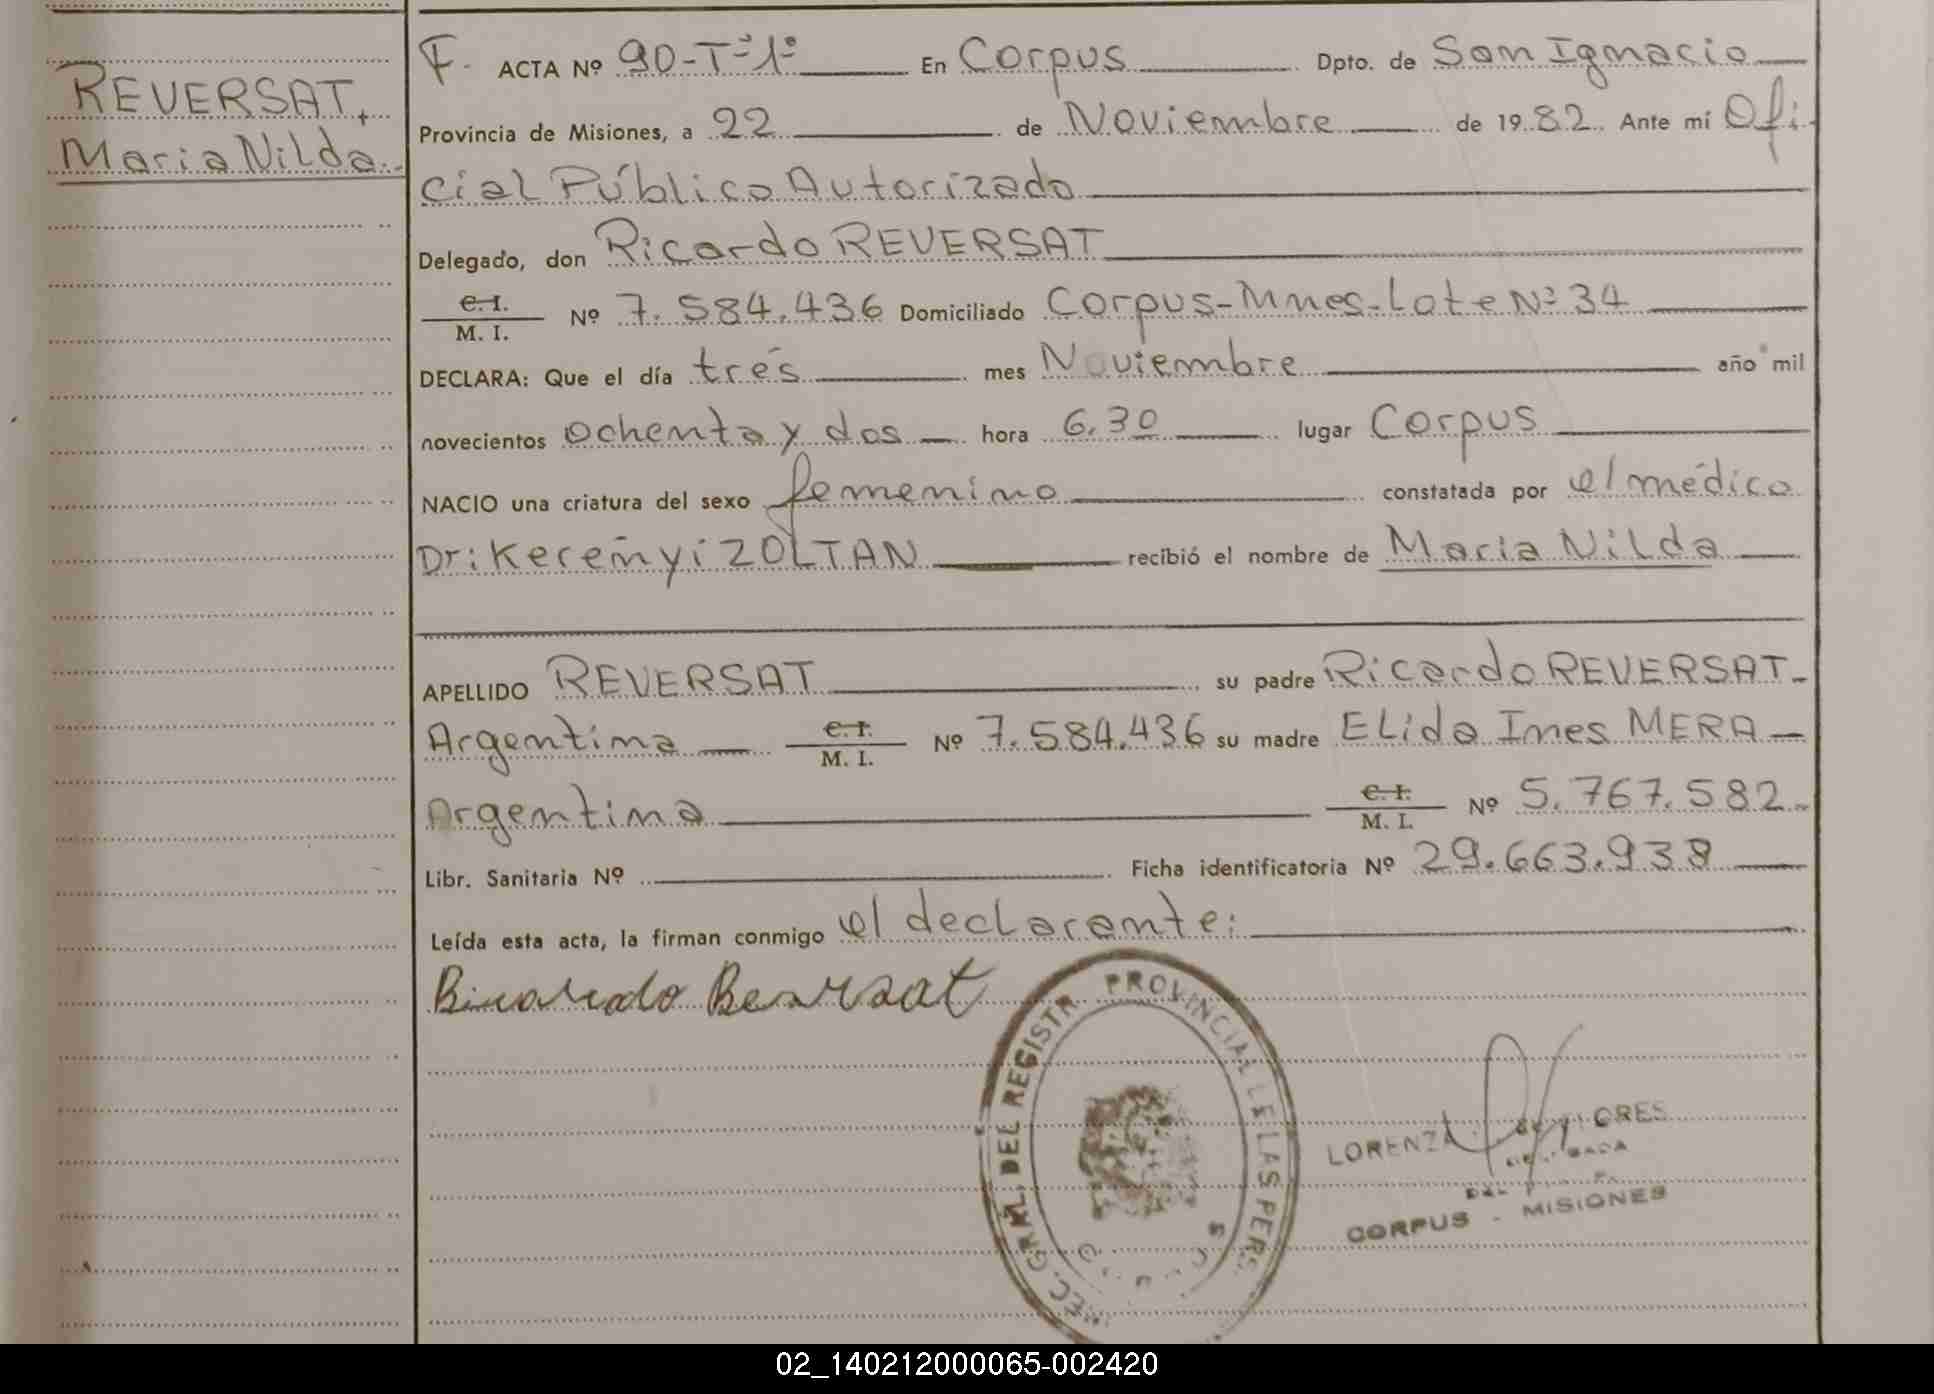 REVERSAT,
Maria Nilda.
F. ACTA Nº 90-Tº1º En Corpus Dpto. de San Ignacio
Provincia de Misiones, a 22 de Noviembre de 1982. Ante mí Ofi-
cial Público Autorizado
Delegado, don Ricardo REVERSAT
C. I.
M. I. Nº 7.584.436 Domiciliado Corpus-Mnes-Lote Nº 34
DECLARA: Que el día tres mes Noviembre año mil
novecientos ochenta y dos hora 6.30 lugar Corpus
NACIO una criatura del sexo femenino constatada por el médico
Dr: Kereñyi ZOLTAN recibió el nombre de Maria Nilda
APELLIDO REVERSAT su padre Ricardo REVERSAT-
Argentina C. I. M. I. Nº 7.584.436 su madre ELida Ines MERA
Argentina C. I. M. I. Nº 5.767.582
Libr. Sanitaria Nº Ficha identificatoria Nº 29.663.938
Leída esta acta, la firman conmigo el declarante:
PROVINCIAL
DEL REGISTR
LAS PERS
CORPUS - MISIONES
02_140212000065-002420